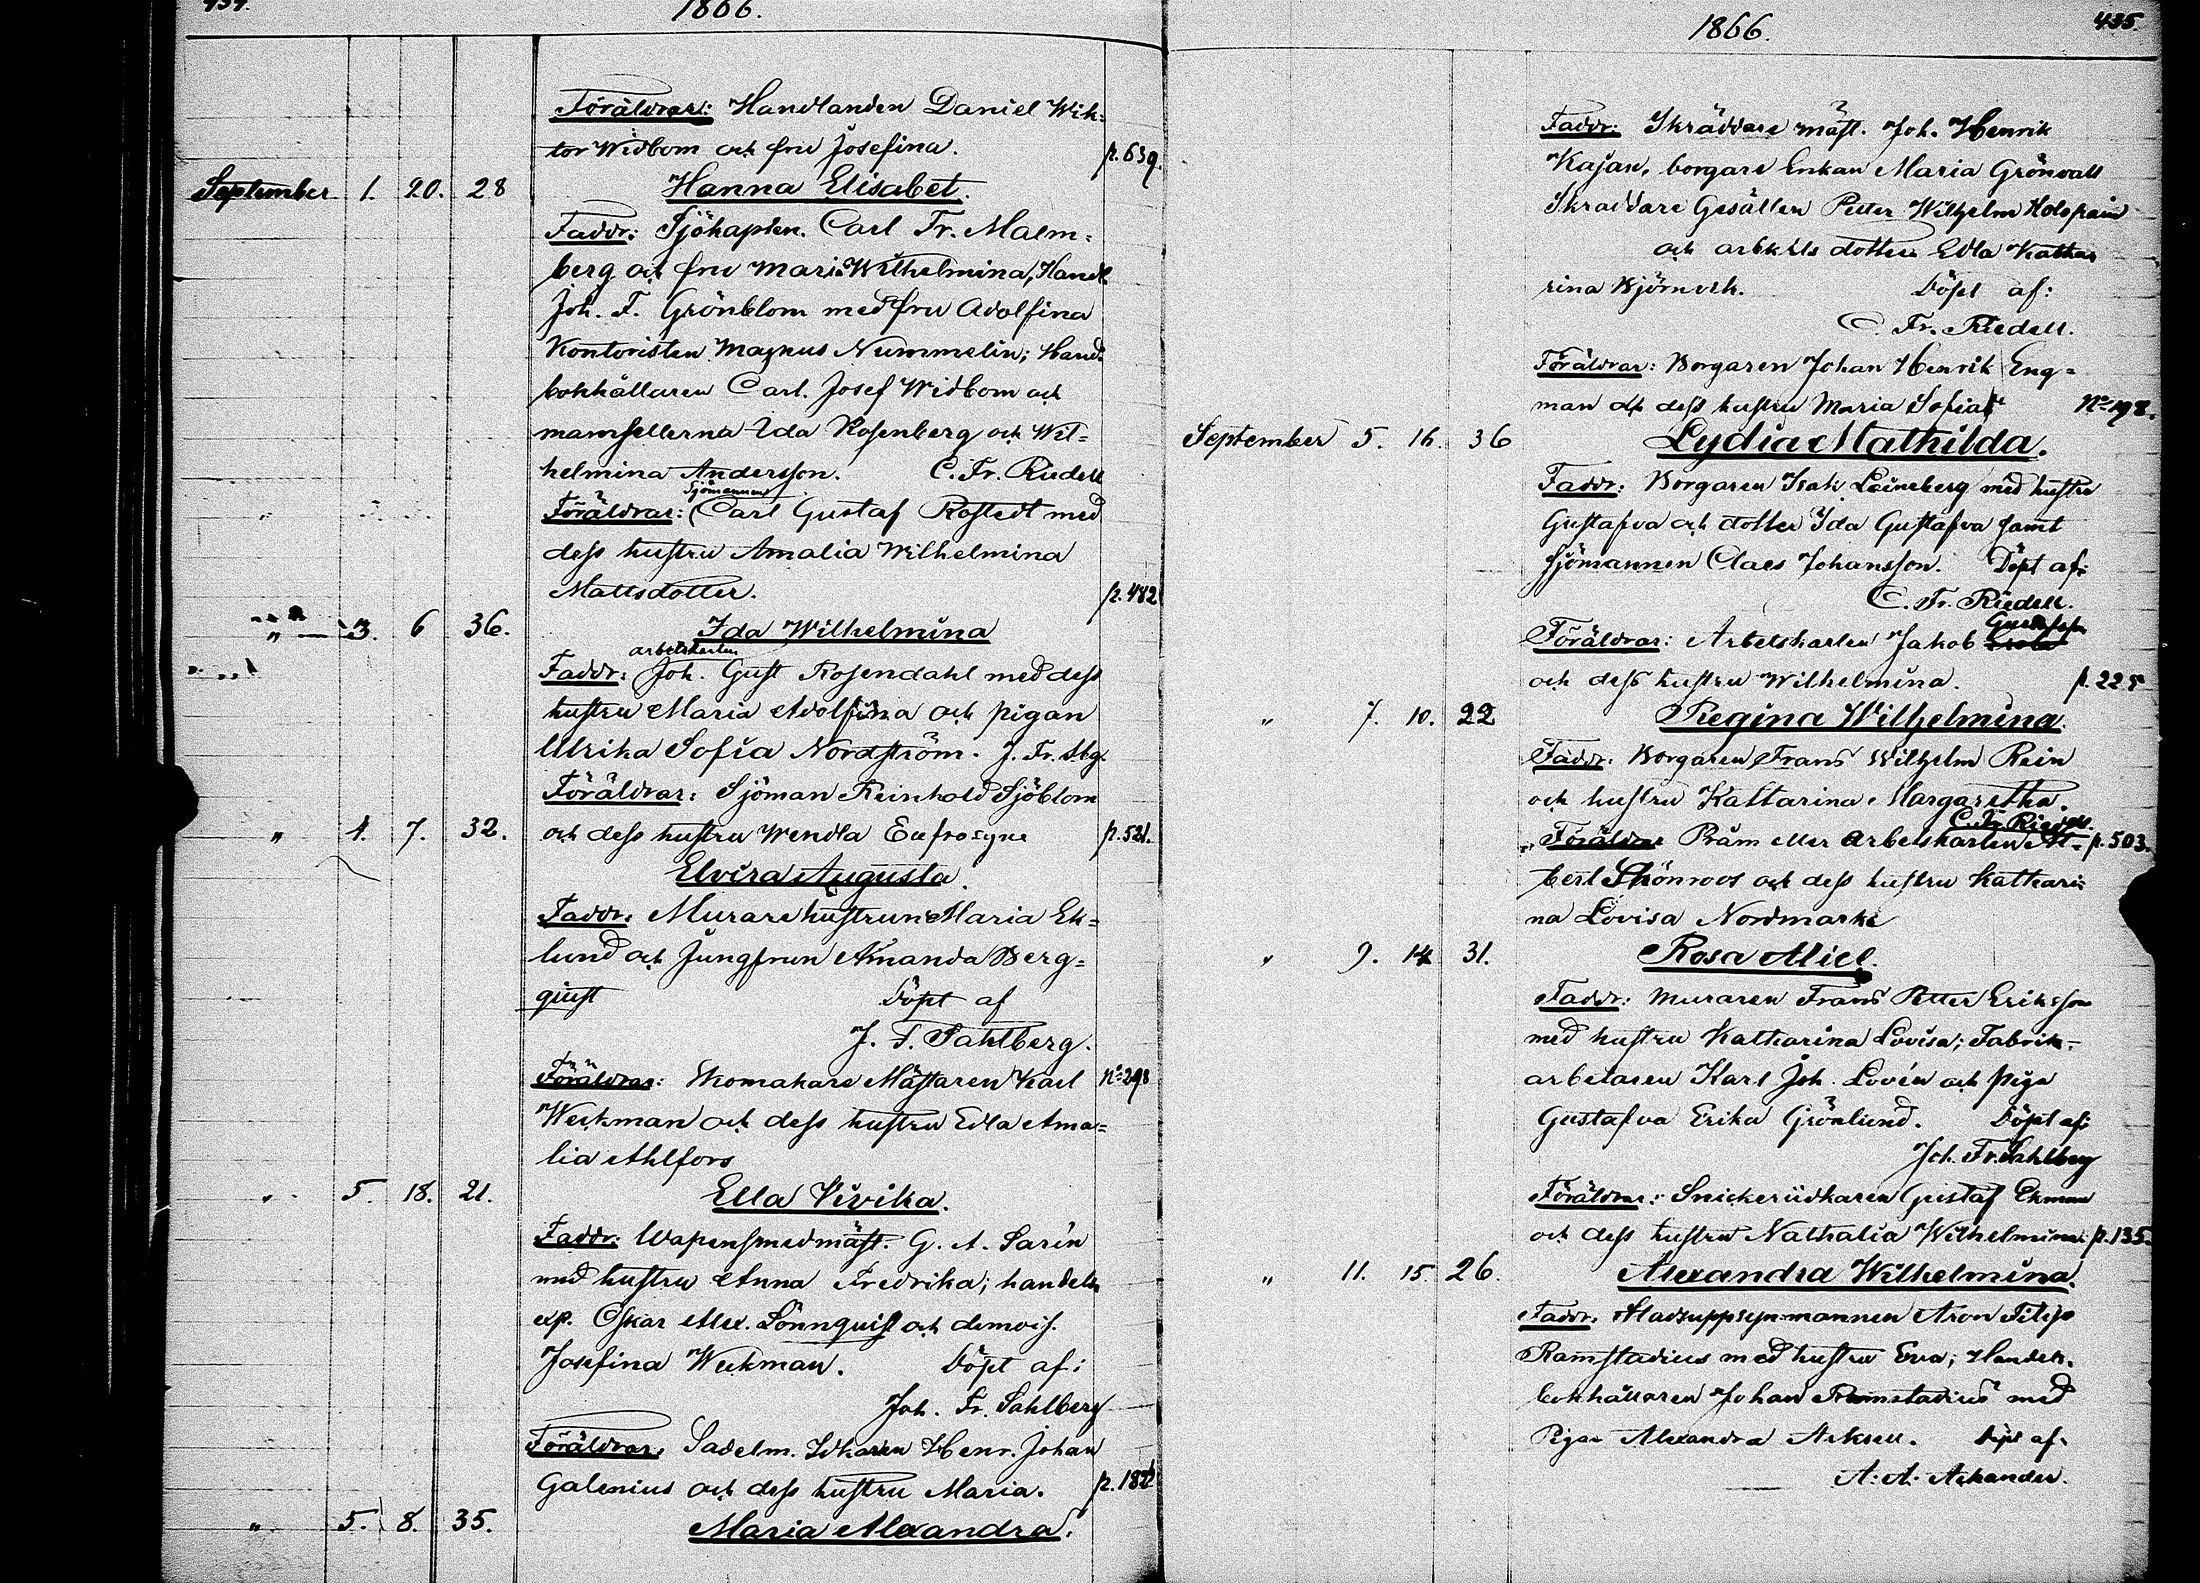 434.
1866.
Föräldrar: Handlanden Daniel Wik-
tor Widbom och fru Josefina. p. 639.
September 1. 20. 28 Hanna Elisabet.
Faddr: Sjökapten. Carl Fr. Malm-
berg och fru Maria Wilhelmina, Handl.
Joh. F. Grönblom med fru Adolfina
Kontoristen Magnus Nummelin; Hand.
bokhållaren Carl. Josef Widbom och
mamsellerna Ida Rosenberg och Wil-
helmina Andersson. C. Fr. Riedell
Sjömannen
Föräldrar: Carl Gustaf Rostedt med
dess hustru Amalia Wilhelmina
Mattsdotter. p. 482
" 3. 6 36. Ida Wilhelmina
arbetskarlen
Faddr: Joh. Gust Rosendahl med dess
hustru Maria Adolfina och pigan
Ulrika Sofia Nordström. J. Fr. Sbg.
Föräldrar: Sjöman Reinhold Sjöblom
" 4. 7. 32. och dess hustru Wendla Eufrosyne p. 521.
Elvira Augusta.
Faddr: Murarehustrun Maria Ek-
lund och Jungfrun Amanda Berg-
quist Döpt af
J. F. Sahlberg.
Föräldrar: Skomakare Mästaren Karl No 298
Weckman och dess hustru Edla Ama-
lia Ahlfors
" 5. 18. 21. Ella Vivika.
Faddr: Wapensmedmäst. G. A. Sarin
med hustru Anna Fredrika; handels
exp. Oskar Alex. Lönnquist och demois.
Josefina Weckman. Döpt af:
Joh. Fr. Sahlberg
Föräldrar: Sadelm. Idkaren Henr. Johan
Galenius och dess hustru Maria. p. 182
" 5. 8. 35. Maria Alexandra.
1866.
435.
Faddr: Skräddare mäst. Joh. Henrik
Kajan, borgare Enkan Maria Grönvall
Skraddare Gesällen Petter Wilhelm
och arbkls dotter Edla Katha
rina Björnvik. Döpt af:
C. Fr. Riedell.
Föräldrar: Borgaren Johan Henrik Eng-
man och dess hustru Maria Sofia No 198.
September 5. 16. 36 Lydia Mathilda.
Faddr: Borgaren Isak Leineberg med hustru
Gustafva och dotter Ida Gustafva samt
sjömannen Claes Johansson. Döpt af:
C. Fr. Riedell.
Föräldrar: Arbetskarlen Jakob
och dess hustru Wilhelmina. p. 225
" 7. 10. 22 Regina Wilhelmina.
Faddr: Borgaren Frans Wilhelm Rein
och hustru Katarina Margaretha.
C. Fr. Riedell.
Föräldrar Pråm eller Arbetskarlen Al- p. 503.
bert Skönroos och dess hustru Kathari-
na Lovisa Nordmark
" 9. 14 31. Rosa Aliel.
Faddr: Muraren Frans Petter Eriksson
med hustru Katharina Lovisa; Fabrik-
arbetaren Karl Joh. Lovén och Piga
Gustafva Erika Grönlund. Döpt af:
Joh. Fr. Sahlberg
Föräldrar: Snickeriidkaren Gustaf Ekman
och dess hustru Nathalia Wilhelmina p. 135.
" 11. 15. 26. Alexandra Wilhelmina.
Faddr: Stadsuppsynmannen Aron Filip
Ramstadius med hustru Eva; Handels.
bokhållaren Johan Ramstadius med
Pigan Alexandra Döpt af: